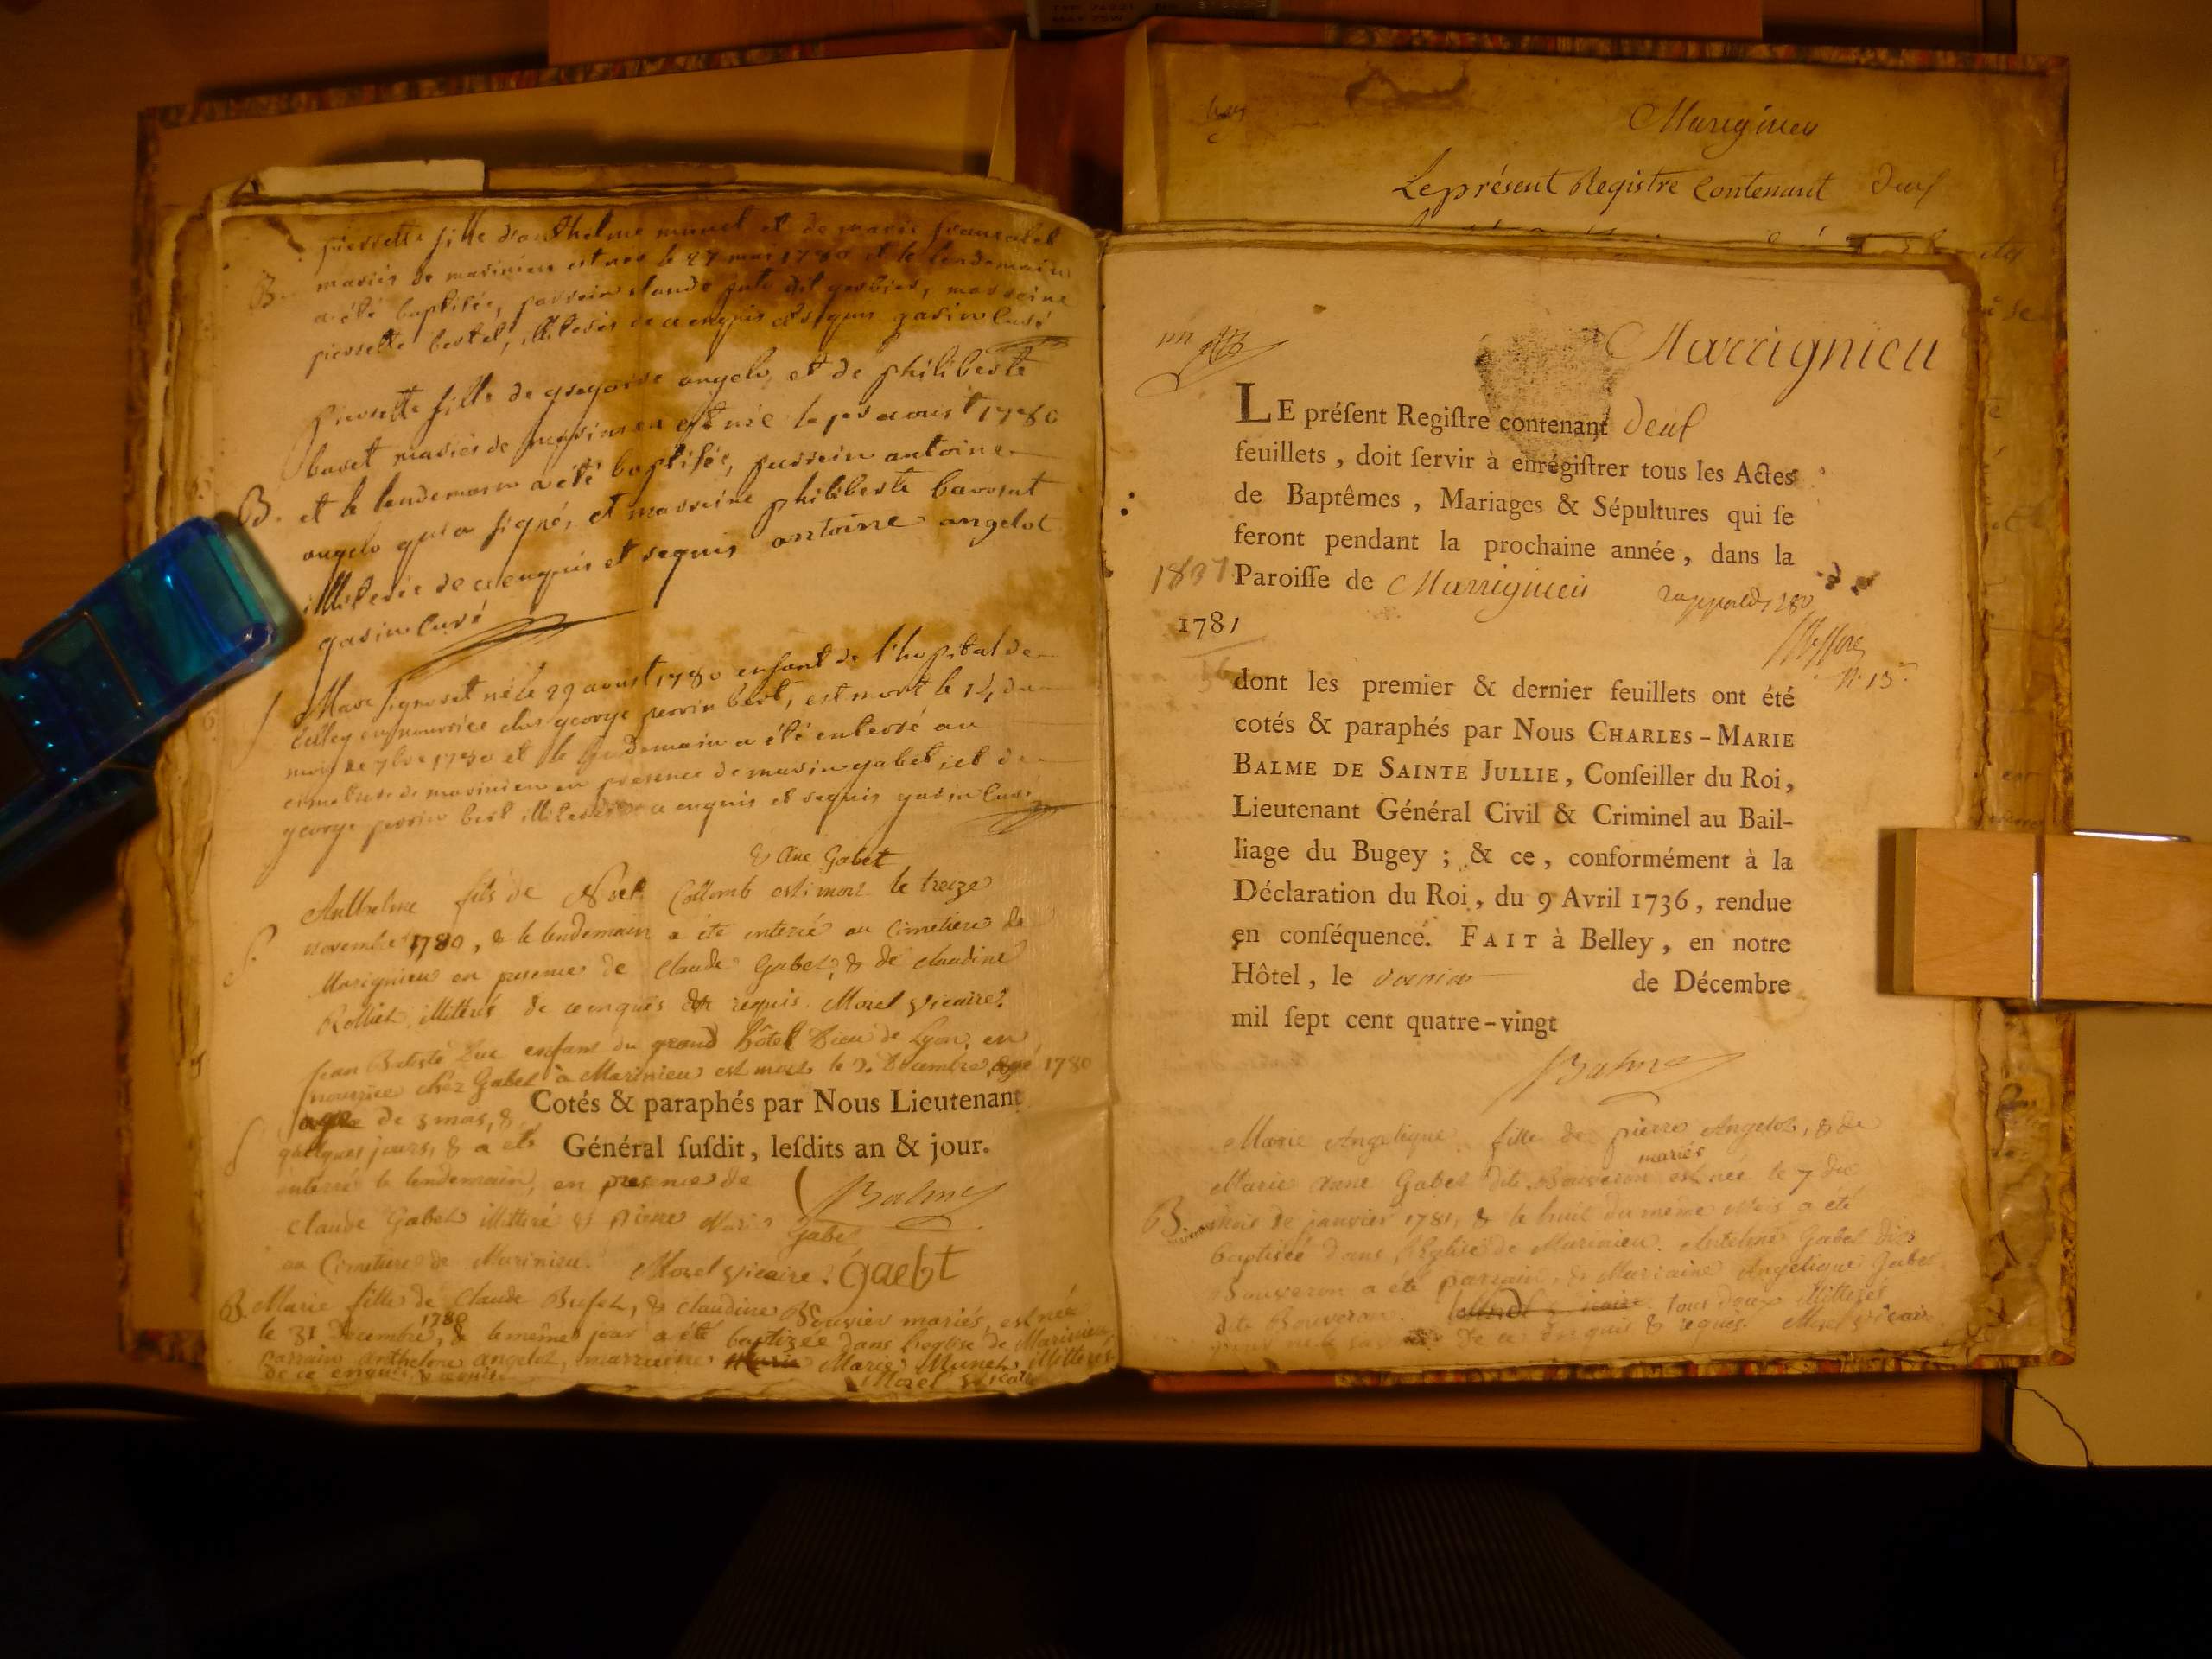 pierrette fille d'anthelme munet et de marie francalet
mariés de marinieu est née le 27 mai 1780 et le lendemain
B. a été baptisée, parrein claude marreine
pierrette bertet, illiterés de ce enquis et requis gasin Curé
pierrette fille de gregoire angelo, et de philiberte
mariés de marinieu est née le pr aoust 1780
B. et le lendemain a été baptisée, parrein antoine
angelo qui a signé, et marreine philiberte
illiterée de ce enquis et requis antoine angelot
gasin Curé
S Marc né le 29 aoust 1780 enfant de l'hopital de
en nourrice chés george perrin bert, est mort le 14 du
mois de 7bre 1780 et le lendemain a été enterré au
cimetiere de marinieu en presence de marin gabet, et de
george perrin bert illiterés de ce enquis et requis gasin Curé
& Ane Gabet
Anthelme fils de Noel Collomb est mort le treize
S. novembre 1780, & le lendemain a été enterré au Cimetiere de
Marignieu en presence de Claude Gabet, & de claudine
Rollet illiterés de ce enquis & requis. Morel Vicaire.
Jean Batiste Luc enfant du grand hôtel Dieu de Lyon, en
nourrice chez Gabet à Marinieu est mort le 2. Decembre 1780
agé de 3 mois, &
S quelques jours, & a été
enterré le lendemain, en presence de
Claude Gabet illiteré & pierre Gabet
au Cimetiere de Marinieu. Morel Vicaire. gaebt
Cotés & paraphés par Nous Lieutenant
Général ſuſdit, leſdits an & jour.
Balme
B. Marie fille de Claude Bufet, & claudine Bouvier mariés, est née
le 31 Decembre 1780, & le même jour a été baptizée dans l'eglise de Marinieu,
parrain anthelme angelot, marraine Marie Munet, illiterés
de ce enquis, & requis. Morel Vicaire
Marignieu
Le présent Registre Contenant deux
Marrignieu
LE préſent Regiſtre contenant deux
feuillets, doit ſervir à enrégiſtrer tous les Actes
de Baptêmes, Mariages & Sépultures qui ſe
feront pendant la prochaine année, dans la
Paroiſſe de Marrignieu
1781
dont les premier & dernier feuillets ont été
cotés & paraphés par Nous CHARLES-MARIE
BALME DE SAINTE JULLIE, Conſeiller du Roi,
Lieutenant Général Civil & Criminel au Bail-
liage du Bugey ; & ce, conformément à la
Déclaration du Roi, du 9 Avril 1736, rendue
en conſéquence. FAIT à Belley, en notre
Hôtel, le dernier de Décembre
mil ſept cent quatre-vingt
Balme
Marie Angelique fille de pierre Angelot, & de
Marie Anne Gabet dite Bouveron mariés est née le 7 du
B. mois de janvier 1781, & le huit du même mois a été
baptisée dans l'Eglise de Marinieu. Antelme Gabet dit
Bouveron a été parrain, & Marraine Angelique Gabet
dite Bouveron. tous deux illiterés
de ce enquis & requis. Morel Vicaire